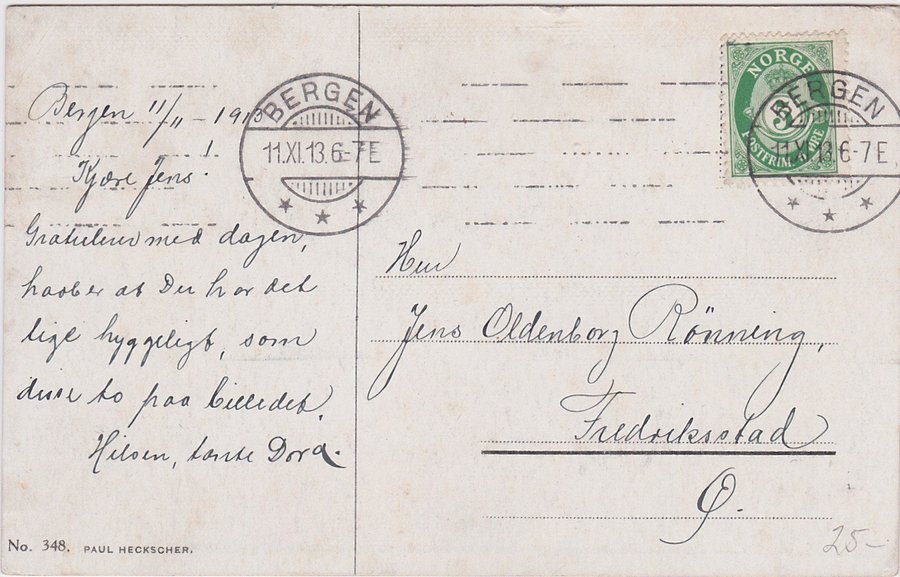 Bergen 11/11 - 1913
Kjære Jens!
Gratulerer med dagen,
haaber at Du har det
lige hyggeligt, som
disse to paa billedet.
Hilsen, tante Dora.
No. 348. PAUL HECKSCHER.
BERGEN
11.XI.13.6-7E
NORGE
5
POSTFRIM. ØRE
BERGEN
11.XI.13.6-7E
Herr
Jens Oldenborg Rönning,
Fredriksstad
Ø.
25-